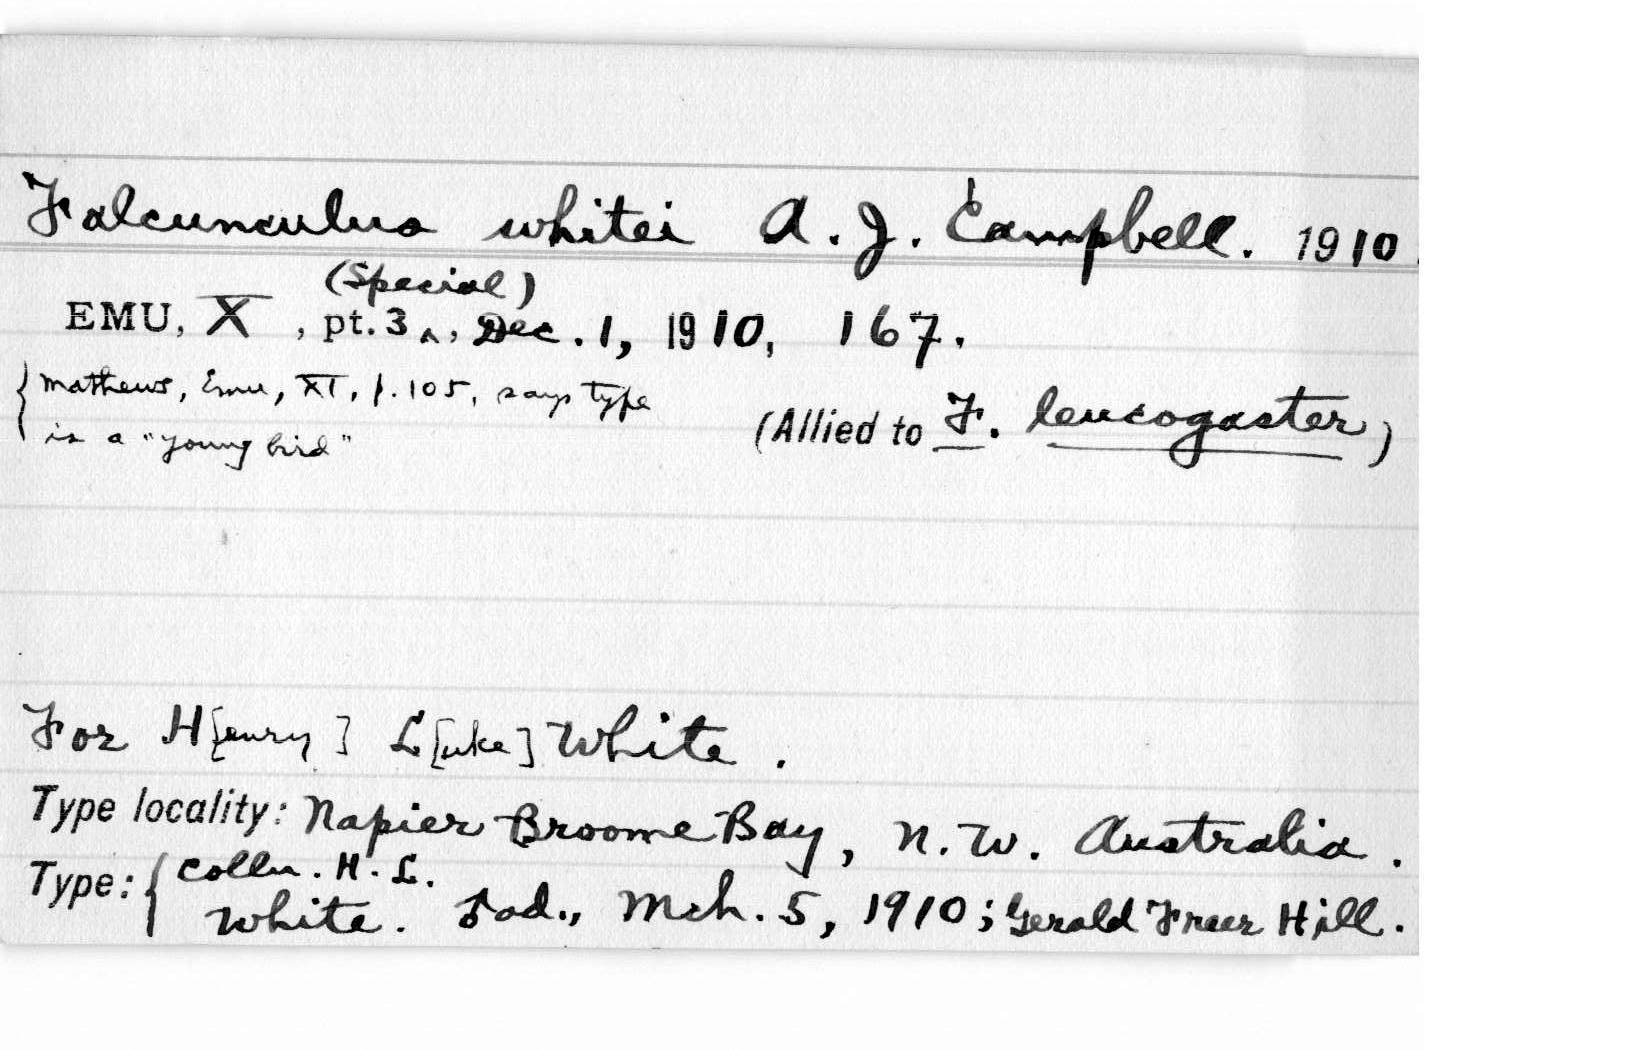 Falcunculus whitei A. J. Campbell. 1910.
(Special)
EMU, X, pt. 3‸, Dec. 1, 1910, 167.
{ Mathews, Emu, XI, p. 105, says type
is a "young bird"
(Allied to F. leucogaster)
For H[enry] L[uke] White.
Type locality: Napier Broome Bay, N. W. Australia.
Type: { Colln. H. L.
White. ad., Mch. 5, 1910; Gerald Freer Hill.